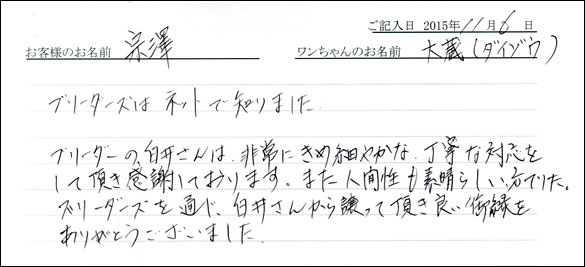 ご記入日 2015年 11月 6日
お客様のお名前 宗澤 ワンちゃんのお名前 大蔵(ダイゾウ)
ブリーダーズは ネットで知りました
ブリーダーの、白井さんは、非常にきめ細やかな、丁寧な対応を
して頂き感謝しております。また人間性も素晴らしい方でした。
ブリーダーズを通じ、白井さんから譲って頂き良い御縁を
ありがとうございました!